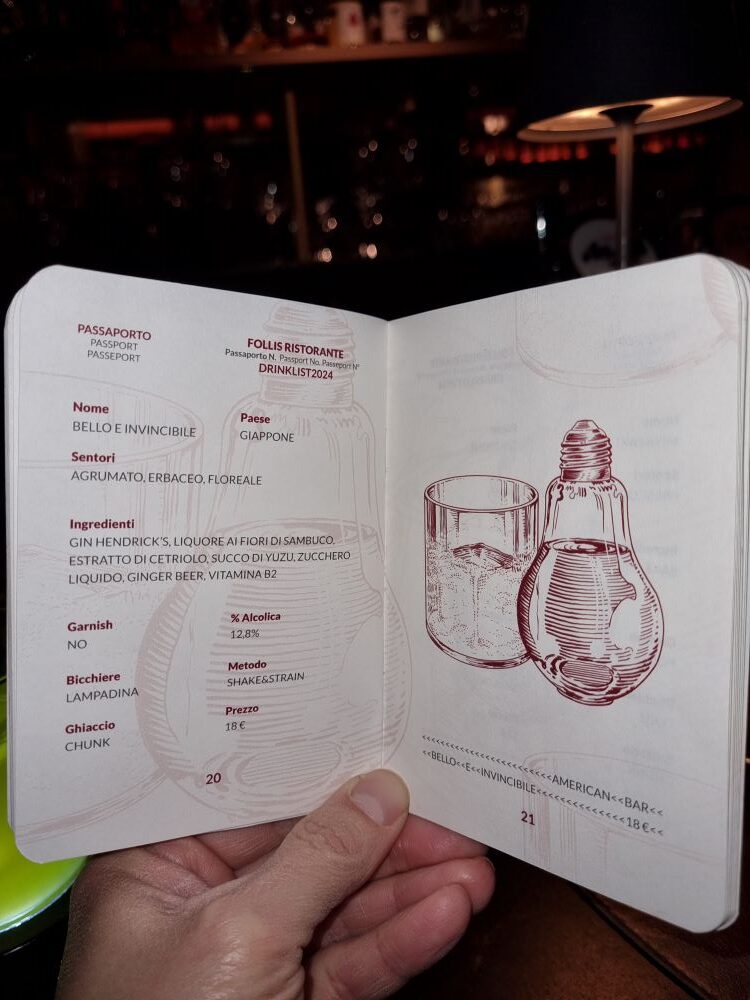 PASSAPORTO
PASSPORT
PASSEPORT
FOLLIS RISTORANTE
Passaporto N. Passport No. Passeport N°
DRINKLIST2024
Nome
BELLO E INVINCIBILE
Paese
GIAPPONE
Sentori
AGRUMATO, ERBACEO, FLOREALE
Ingredienti
GIN HENDRICK'S, LIQUORE AI FIORI DI SAMBUCO,
ESTRATTO DI CETRIOLO, SUCCO DI YUZU, ZUCCHERO
LIQUIDO, GINGER BEER, VITAMINA B2
Garnish
NO
% Alcolica
12,8%
Bicchiere
LAMPADINA
Metodo
SHAKE&STRAIN
Ghiaccio
CHUNK
Prezzo
18 €
20
<<<<<<<<<<<<<<<<<<<<<<AMERICAN<<BAR<<
<<BELLO<<E<<INVINCIBILE<<<<<<<<<<<<<<<18 €<<
21